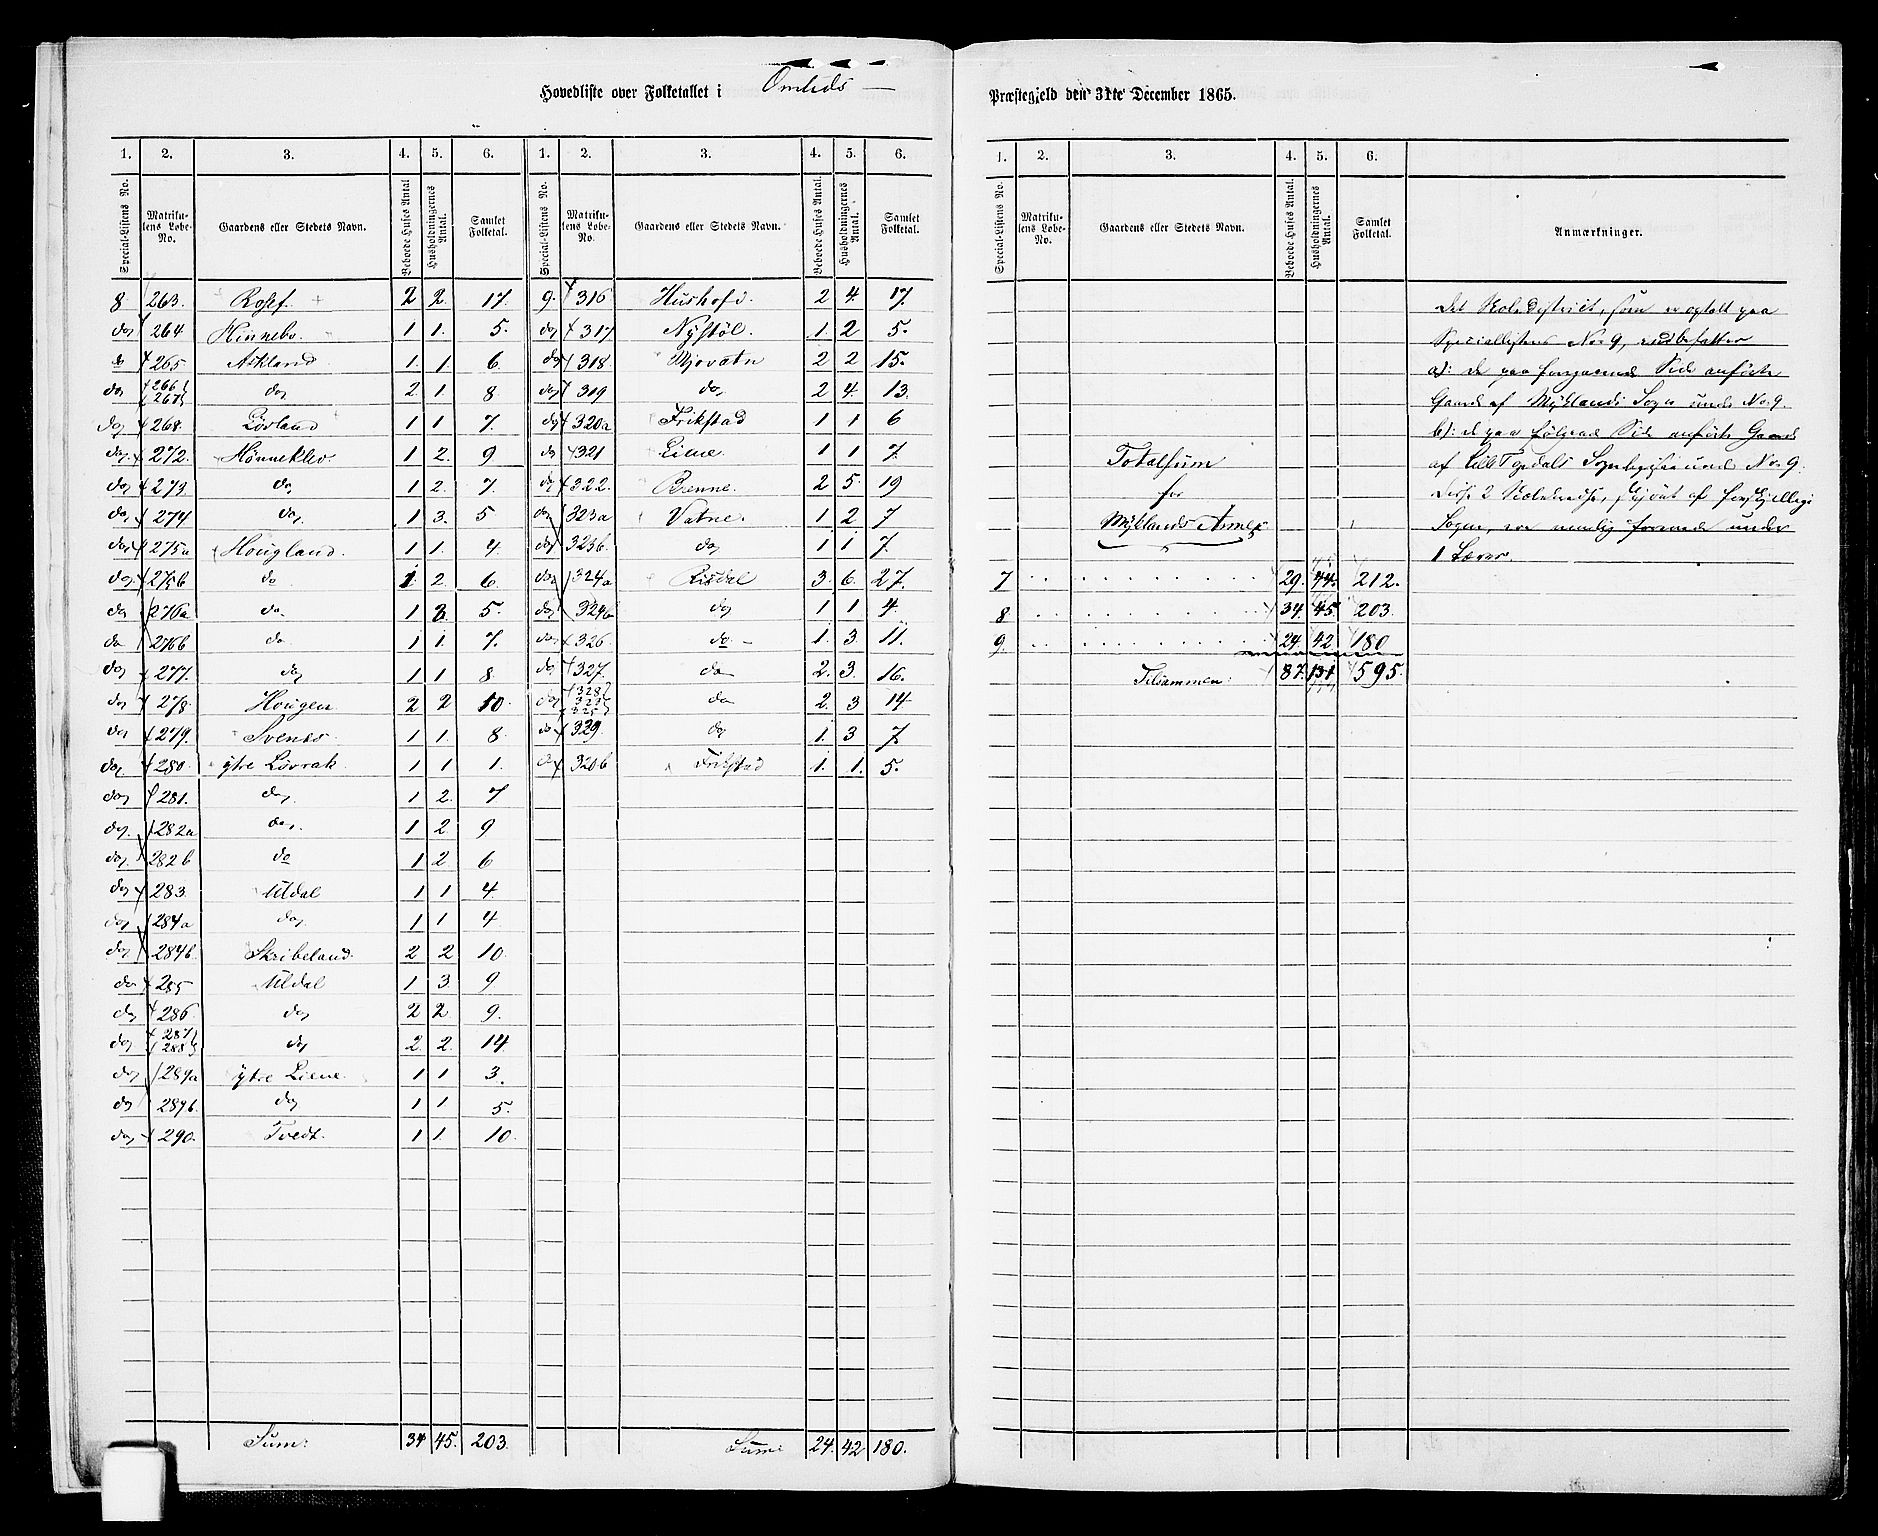 Hovedliste over Folketallet i Omlids Præstegjeld den 31te December 1865.
1. 2. 3. 4. 5. 6. 1. 2. 3. 4. 5. 6.
Special-Listens No. Matrikulens Løbe-No. Gaardens eller Stedets Navn. Beboede Huses Antal Husholdningernes Antal. Samlet Folketal. Special-Listens No. Matrikulens Løbe-No. Gaardens eller Stedets Navn. Beboede Huses Antal. Husholdningernes Antal. Samlet Folketal.
8 263. 2 2. 17. 9. 316 2 4. 17.
do 264 Hinnebo. 1 1. 5. do 317 Nystöl. 1. 2 5.
do 265 Askland. 1. 1. 6. do 318 Mjovatn 2 2 15.
do 266 267 do 2. 1. 8 do 319 do 2 4. 13.
do 268. Lövland 1 1 7. do 320a Frikstad 1 1 6
do 272. Hønneklev 1 2. 9 do 321 1 1 7.
do 273. do 1 2. 7. do 322. Brenne. 2 5. 19
do 274 do 1 3. 5 do 323a Vatne. 1 2 7
do 275a Hougland. 1 1. 4. do 323b. do 1 1 7.
do 275b do 1. 2. 6. do 324a Risdal 3. 6. 27.
do 276a do 1 2. 5. do 324b do 1 1 4.
do 276b do 1 1. 7. do 326. do 1. 3. 11.
do 277. do 1 1 8 do 327. do 2. 3. 16.
do 278. Hougen. 2 2 10. do 328 do 2. 3 14
do 279. Svenes 1 1. 8. do 329. do 1. 3 7.
do 280. ytre Lövrak 1 1 1. do 320b Frikstad 1. 1. 5.
do 281. do 1 2. 7
do 282a do 1 2 9
do 282b do 1 2. 6
do 283. Uldal 1 1 4.
do 284a do 1 1 4
do 284b. Skribeland. 2 2 10.
do 285 Uldal 1 3. 9
do 286. do 2 2. 9.
do 287 288 do 2. 2. 14
do 289a ytre Liene. 1 1 3.
do 289b. do 1 1 5.
do 290. Tvedt. 1 1. 10.
Sum: 34 45. 203. Sum: 24. 42 180.
1. 2. 3. 4. 5. 6.
Special-Listens No. Matrikulens Løbe-No. Gaardens eller Stedets Navn. Beboede Huses Antal. Husholdningernes Antal. Samlet Folketal. Anmærkninger.
Det Skoledistrict, som er optalt paa
Speciallistens No 9, indbefatter
a): de paa foregaaende Side anförte
Gaarde af Myklands Sogn under No. 9.
b): de paa fölgende Side anförte Gaarde
af Sogn under No. 9.
disse 2 af forskjellige
Sogne, ere nemlig forenede under
1 Lærer.
Totalsum
for
Myklands Annex
7 29. 44. 212.
8 34. 45. 203.
9. 24. 42 180
Tilsammen: 87. 131 595.